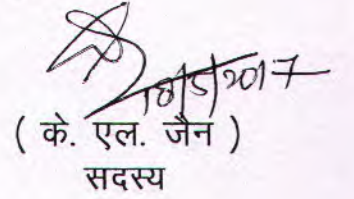 18/5/2017
( के. एल. जैन )
सदस्य